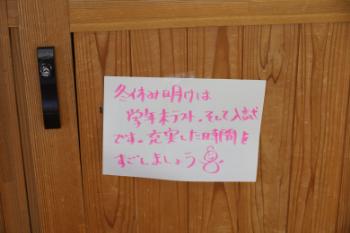 冬休み明けは
学年末テスト、そして入試
です。充実した時間を
すごしましょう